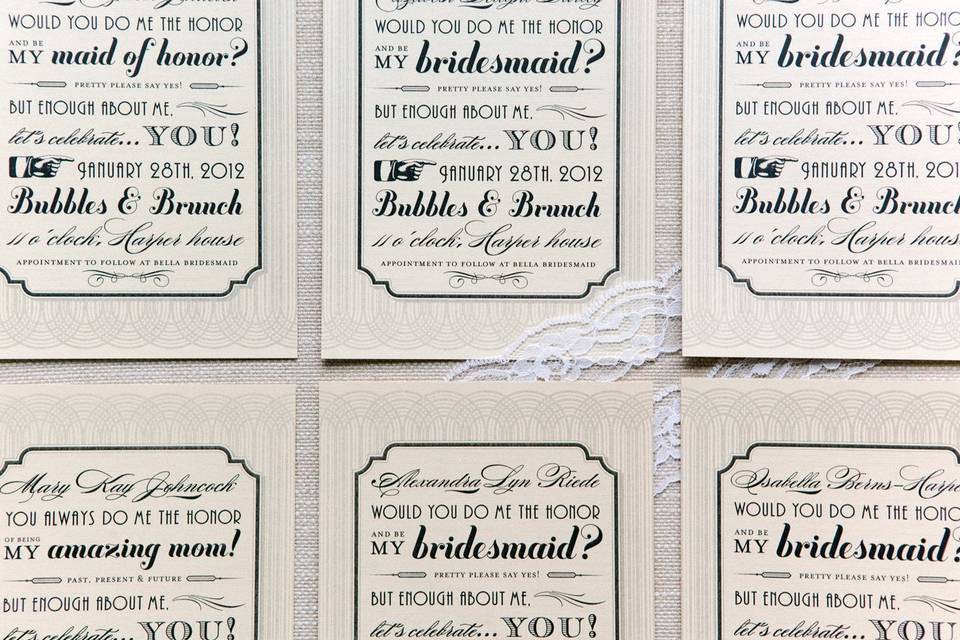 WOULD YOU DO ME THE HONOR
AND BE MY maid of honor?
PRETTY PLEASE SAY YES!
BUT ENOUGH ABOUT ME,
let's celebrate... YOU!
JANUARY 28TH, 2012
Bubbles & Brunch
11 o'clock, Harper house
APPOINTMENT TO FOLLOW AT BELLA BRIDESMAID
WOULD YOU DO ME THE HONOR
AND BE MY bridesmaid?
PRETTY PLEASE SAY YES!
BUT ENOUGH ABOUT ME,
let's celebrate... YOU!
JANUARY 28TH, 2012
Bubbles & Brunch
11 o'clock, Harper house
APPOINTMENT TO FOLLOW AT BELLA BRIDESMAID
WOULD YOU DO ME THE HONO
AND BE MY bridesmaid?
PRETTY PLEASE SAY YES!
BUT ENOUGH ABOUT ME,
let's celebrate... YOU!
JANUARY 28TH, 201
Bubbles & Brunch
11 o'clock, Harper house
APPOINTMENT TO FOLLOW AT BELLA BRIDESMAID
Mary Kay Johncock
YOU ALWAYS DO ME THE HONOR
OF BEING MY amazing mom!
PAST, PRESENT & FUTURE
BUT ENOUGH ABOUT ME,
let's celebrate... YOU!
Alexandra Lyn Riede
WOULD YOU DO ME THE HONOR
AND BE MY bridesmaid?
PRETTY PLEASE SAY YES!
BUT ENOUGH ABOUT ME,
let's celebrate... YOU!
Isabella Berns-Harpe
WOULD YOU DO ME THE HONOR
AND BE MY bridesmaid?
PRETTY PLEASE SAY YES!
BUT ENOUGH ABOUT ME,
let's celebrate... YOU!